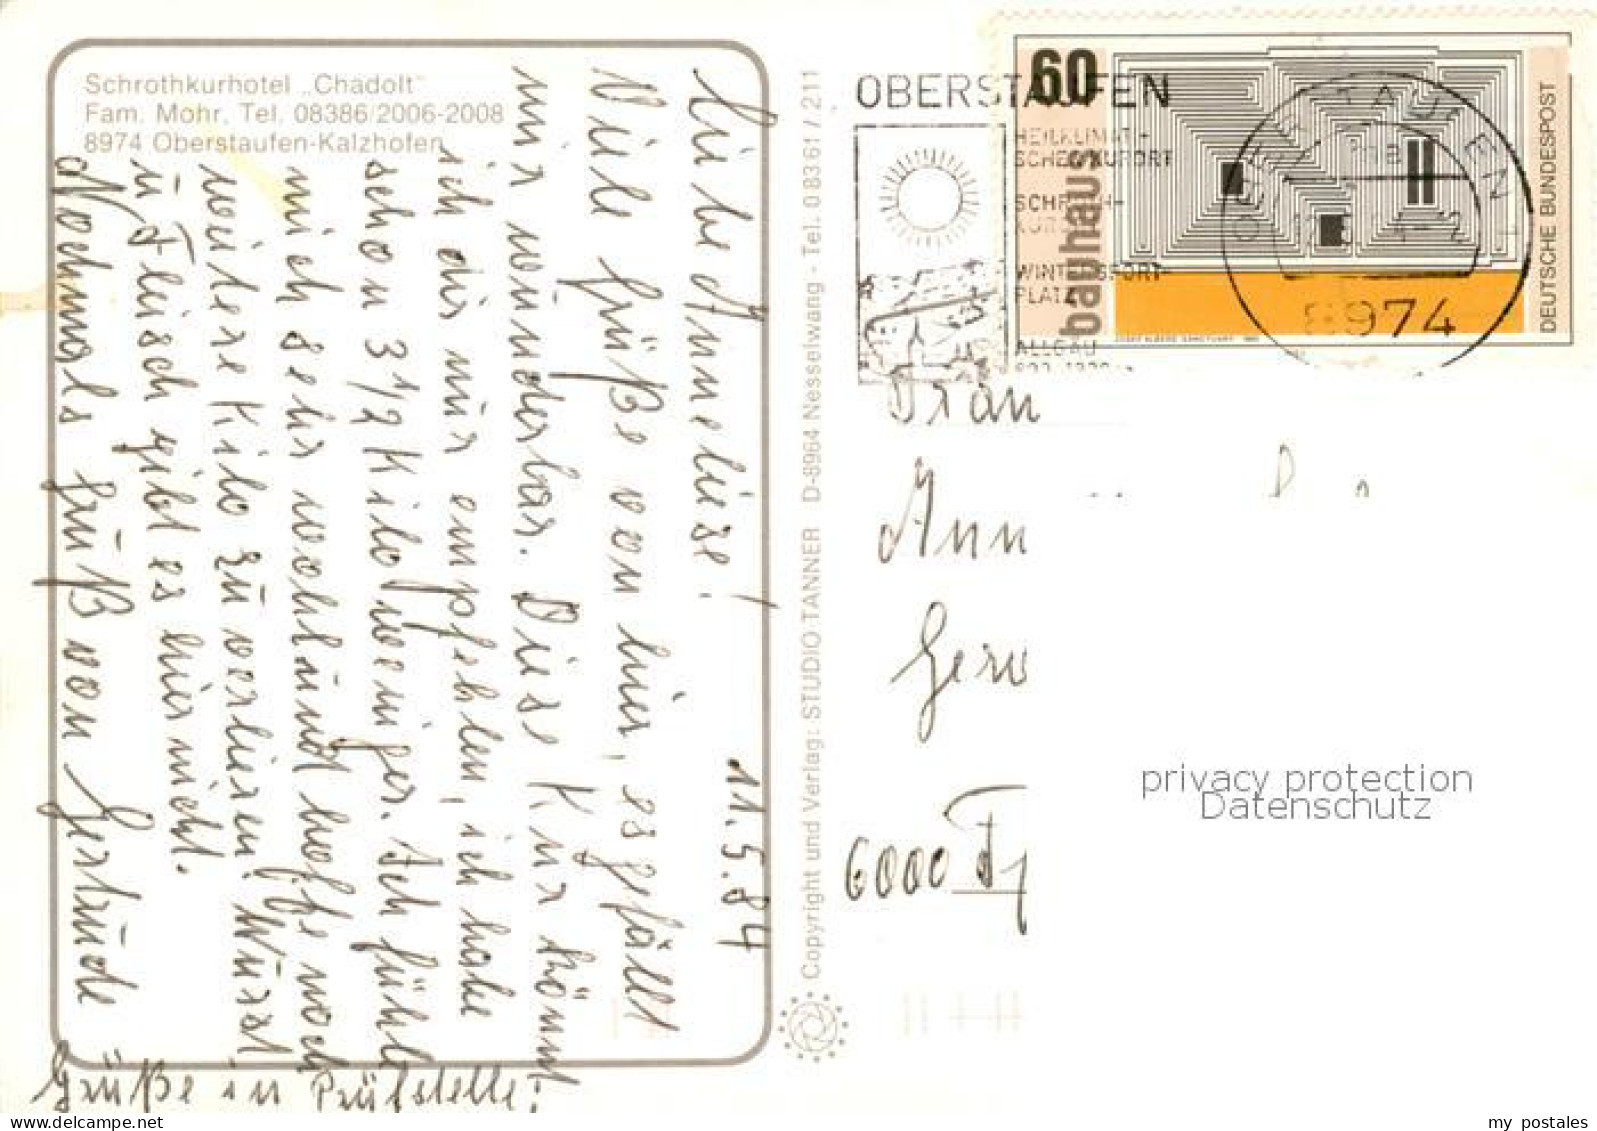 Schrothkurhotel „Chadolt"
Fam. Mohr, Tel. 08386/2006-2008
8974 Oberstaufen-Kalzhofen
11.5.84
Liebe Anneliese!
Viele Grüße von hier, es gefällt
mir wunderbar. Diese Kur könnt
ich dir nur empfehlen, ich habe
schon 3 1/2 Kilo weniger. Ich fühle
mich sehr wohl und hoffe noch
weitere Kilo zu verlieren. Wurst
u Fleisch gibt es hier nicht.
Nochmals Gruß von Gertrude
Grüße in Prüfstelle!
Copyright und Verlag: STUDIO TANNER D-8964 Nesselwang - Tel. 08361/211
OBERSTAUFEN
HEILKLIMAT.-
SCHROTHKURORT
SCHROTH-
KUREN
WINTERSPORT-
PLATZ
ALLGÄU
OBERSTAUFEN 1
8974
60
bauhaus
DEUTSCHE BUNDESPOST
Frau
Ann
Gerv
6000 Fr
privacy protection
Datenschutz
my postales